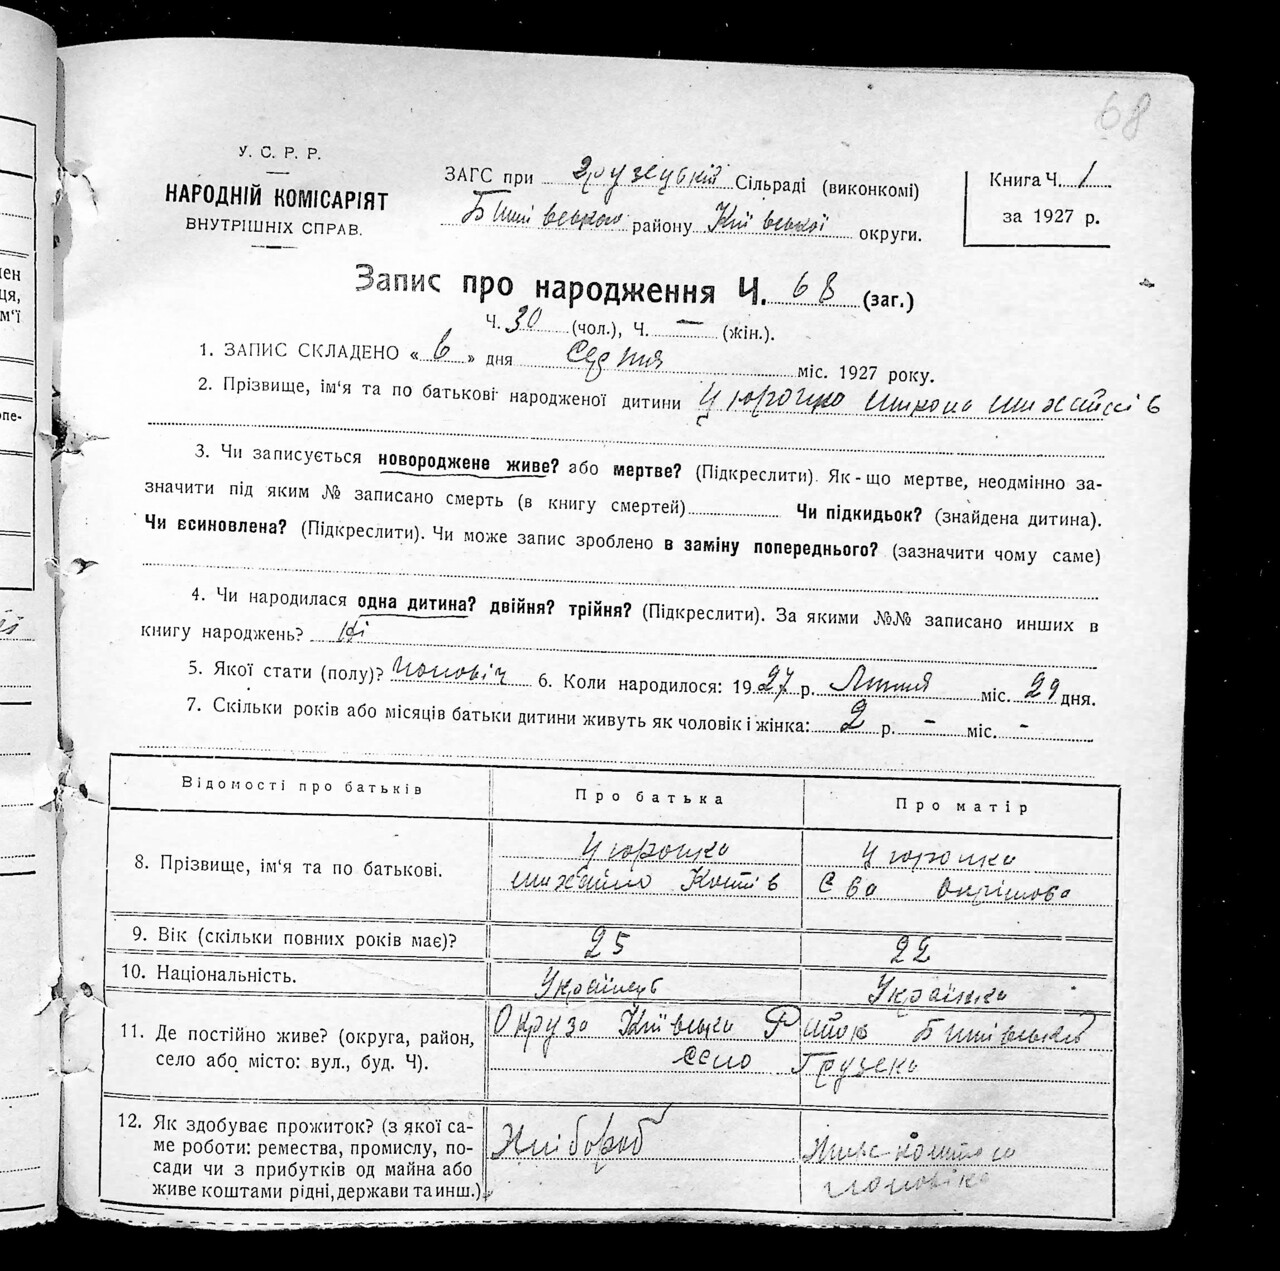 68
У. С. Р. Р.
НАРОДНІЙ КОМІСАРІЯТ
ВНУТРІШНІХ СПРАВ.
ЗАГС при Грузецькій Сільраді (виконкомі)
району Київської округи.
Книга Ч. 1
за 1927 р.
Запис про народження Ч. 68 (заг.)
Ч. 30 (чол.), Ч. — (жін.).
1. ЗАПИС СКЛАДЕНО « 6 » дня Серпня міс. 1927 року.
2. Прізвище, ім'я та по батькові народженої дитини
3. Чи записується новороджене живе? або мертве? (Підкреслити). Як-що мертве, неодмінно за-
значити під яким № записано смерть (в книгу смертей) Чи підкидьок? (знайдена дитина).
Чи єсиновлена? (Підкреслити). Чи може запис зроблено в заміну попереднього? (зазначити чому саме)
4. Чи народилася одна дитина? двійня? трійня? (Підкреслити). За якими №№ записано инших в
книгу народжень? Ні
5. Якої стати (полу)? чоловіч 6. Коли народилося: 1927 р. Липня міс. 29 дня.
7. Скільки років або місяців батьки дитини живуть як чоловік і жінка: 2 р. - міс. -
Відомості про батьків
Про батька
Про матір
8. Прізвище, ім'я та по батькові.
Цюропка
Михайло Котів
Цюропка
Єва
9. Вік (скільки повних років має)?
25
22
10. Національність.
Українець
Українка
11. Де постійно живе? (округа, район,
село або місто: вул., буд. Ч).
Округа Київська Район
село Грузька
12. Як здобуває прожиток? (з якої са-
ме роботи: ремества, промислу, по-
сади чи з прибутків од майна або
живе коштами рідні, держави та инш.)
Хлібороб
чоловіка